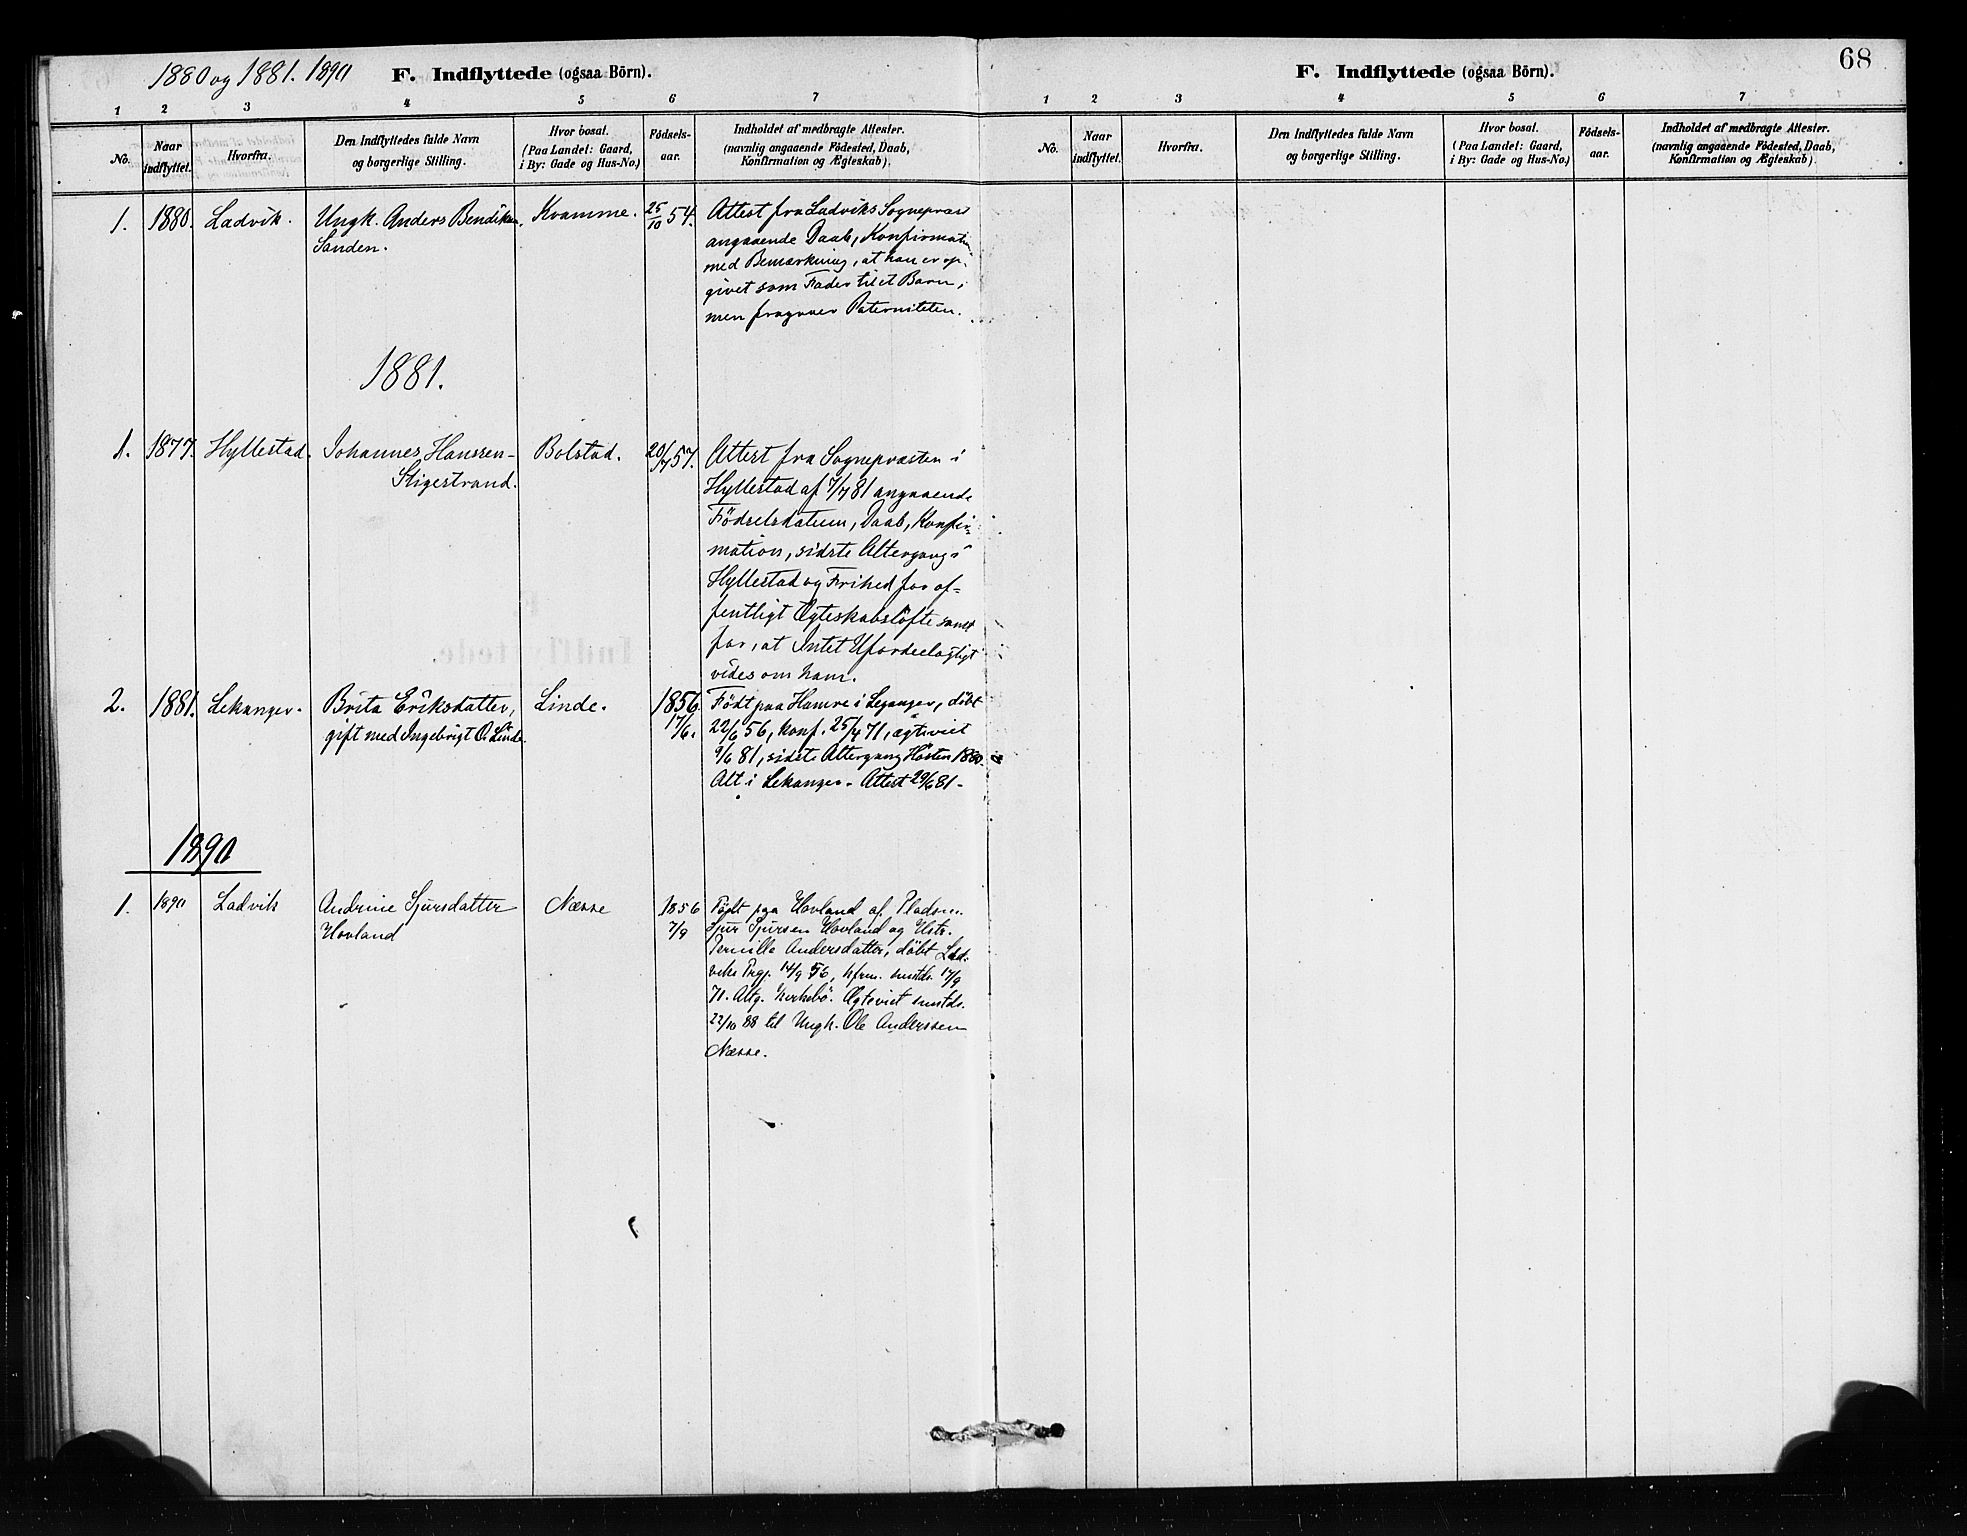 1880 og 1881. 1890
F. Indflyttede (ogsaa Börn).
1 2 3 4 5 6 7
No.
Naar indflyttet.
Hvorfra.
Den Indflyttedes fulde Navn
og borgerlige Stilling.
Hvor bosat.
(Paa Landet: Gaard,
i By: Gade og Hus-No.)
Födsels-
aar.
Indholdet af medbragte Attester.
(navnlig angaaende Födested, Daab,
Konfirmation og Ægteskab).
1. 1880. Ladvik. Ungk. Anders Bendiksen Kvamme. 25/10 54.
Sanden.
Attest fra Ladviks Sognepræst
angaaende Daab, Konfirmation
med Bemærkning, at han er op-
givet som Fader til et Barn,
men fragaaer Paterniteten.
1881.
1. 1877. Hyllestad. Johannes Hanssen- Bolstad. 20/7 57.
Stigestrand.
Attest fra Sognepræsten i
Hyllestad af 7/7 81 angaaende
Födselsdatum, Daab, Konfir-
mation, sidste Altergang i
Hyllestad og Frihed for of-
fentligt Ægteskabslöfte samt
for, at Intet Ufordeelagtigt
vides om ham.
2. 1881. Lekanger. Brita Eriksdatter, Linde. 1856
gift med Ingebrigt O. Linde. 17/6.
Födt paa Hamre i Leganger, döbt
22/6 56, konf. 25/4 71, ægteviet
9/6 81, sidste Altergang Hösten 1880.
Alt i Lekanger. Attest 29/6 81-
1890
1. 1890 Ladvik Andrine Sjursdatter Næsse 1856
Hovland 7/9
Födt paa Hovland af Pladsm.
Sjur Sjursen Hovland og Hstr.
Pernille Andersdatter, döbt Lad-
viks Prgj. 14/9 56, kfrm. smstds. 17/9
71. Altg. Kirkebö. Ægteviet smstds.
22/10 88 til Ungk. Ole Anderssen
Næsse.
68
F. Indflyttede (ogsaa Börn).
1 2 3 4 5 6 7
No.
Naar
indflyttet.
Hvorfra.
Den Indflyttedes fulde Navn
og borgerlige Stilling.
Hvor bosat.
(Paa Landet: Gaard,
i By: Gade og Hus-No.)
Födsels-
aar.
Indholdet af medbragte Attester.
(navnlig angaaende Födested, Daab,
Konfirmation og Ægteskab).